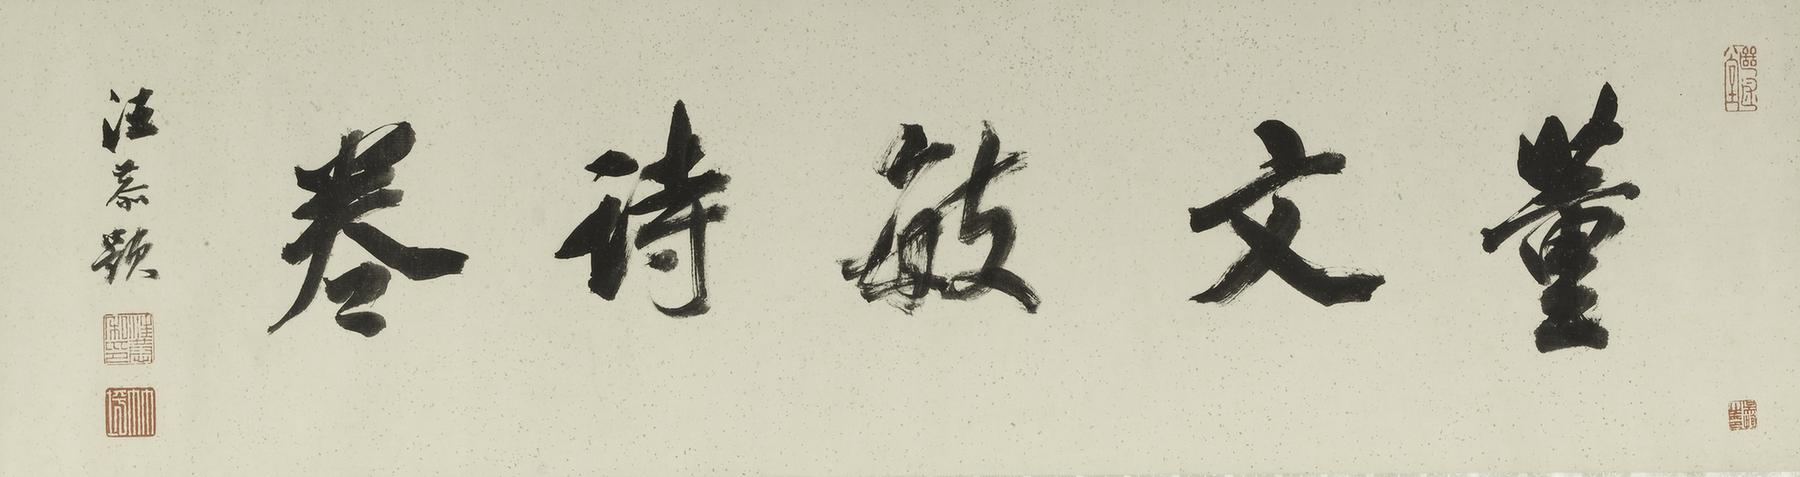 董文敏詩卷
汪恭題